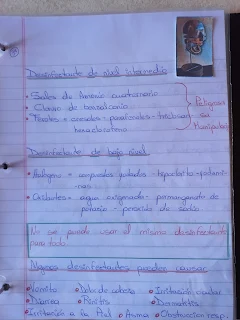 Desinfectante de nivel intermedio
• Sales de Amonio cuaternario
• Cloruro de benzalconio
• Fenoles + cresoles - paraclorofenol - triclosan
hexaclorofeno
Peligroso
su
Manipulación
Desinfectante de bajo nivel
• Halógeno = compuestos yodados - hipoclorito -
• Oxidantes = agua oxigenada - permanganato de
potasio - perborato de sodio
No se puede usar el mismo desinfectante
para todo.
Algunos desinfectantes pueden causar
• Vómito • Dolor de cabeza • Irritación ocular
• Diarrea • Rinitis • Dermatitis
• Irritación a la Piel • Asma • Obstrucción resp.